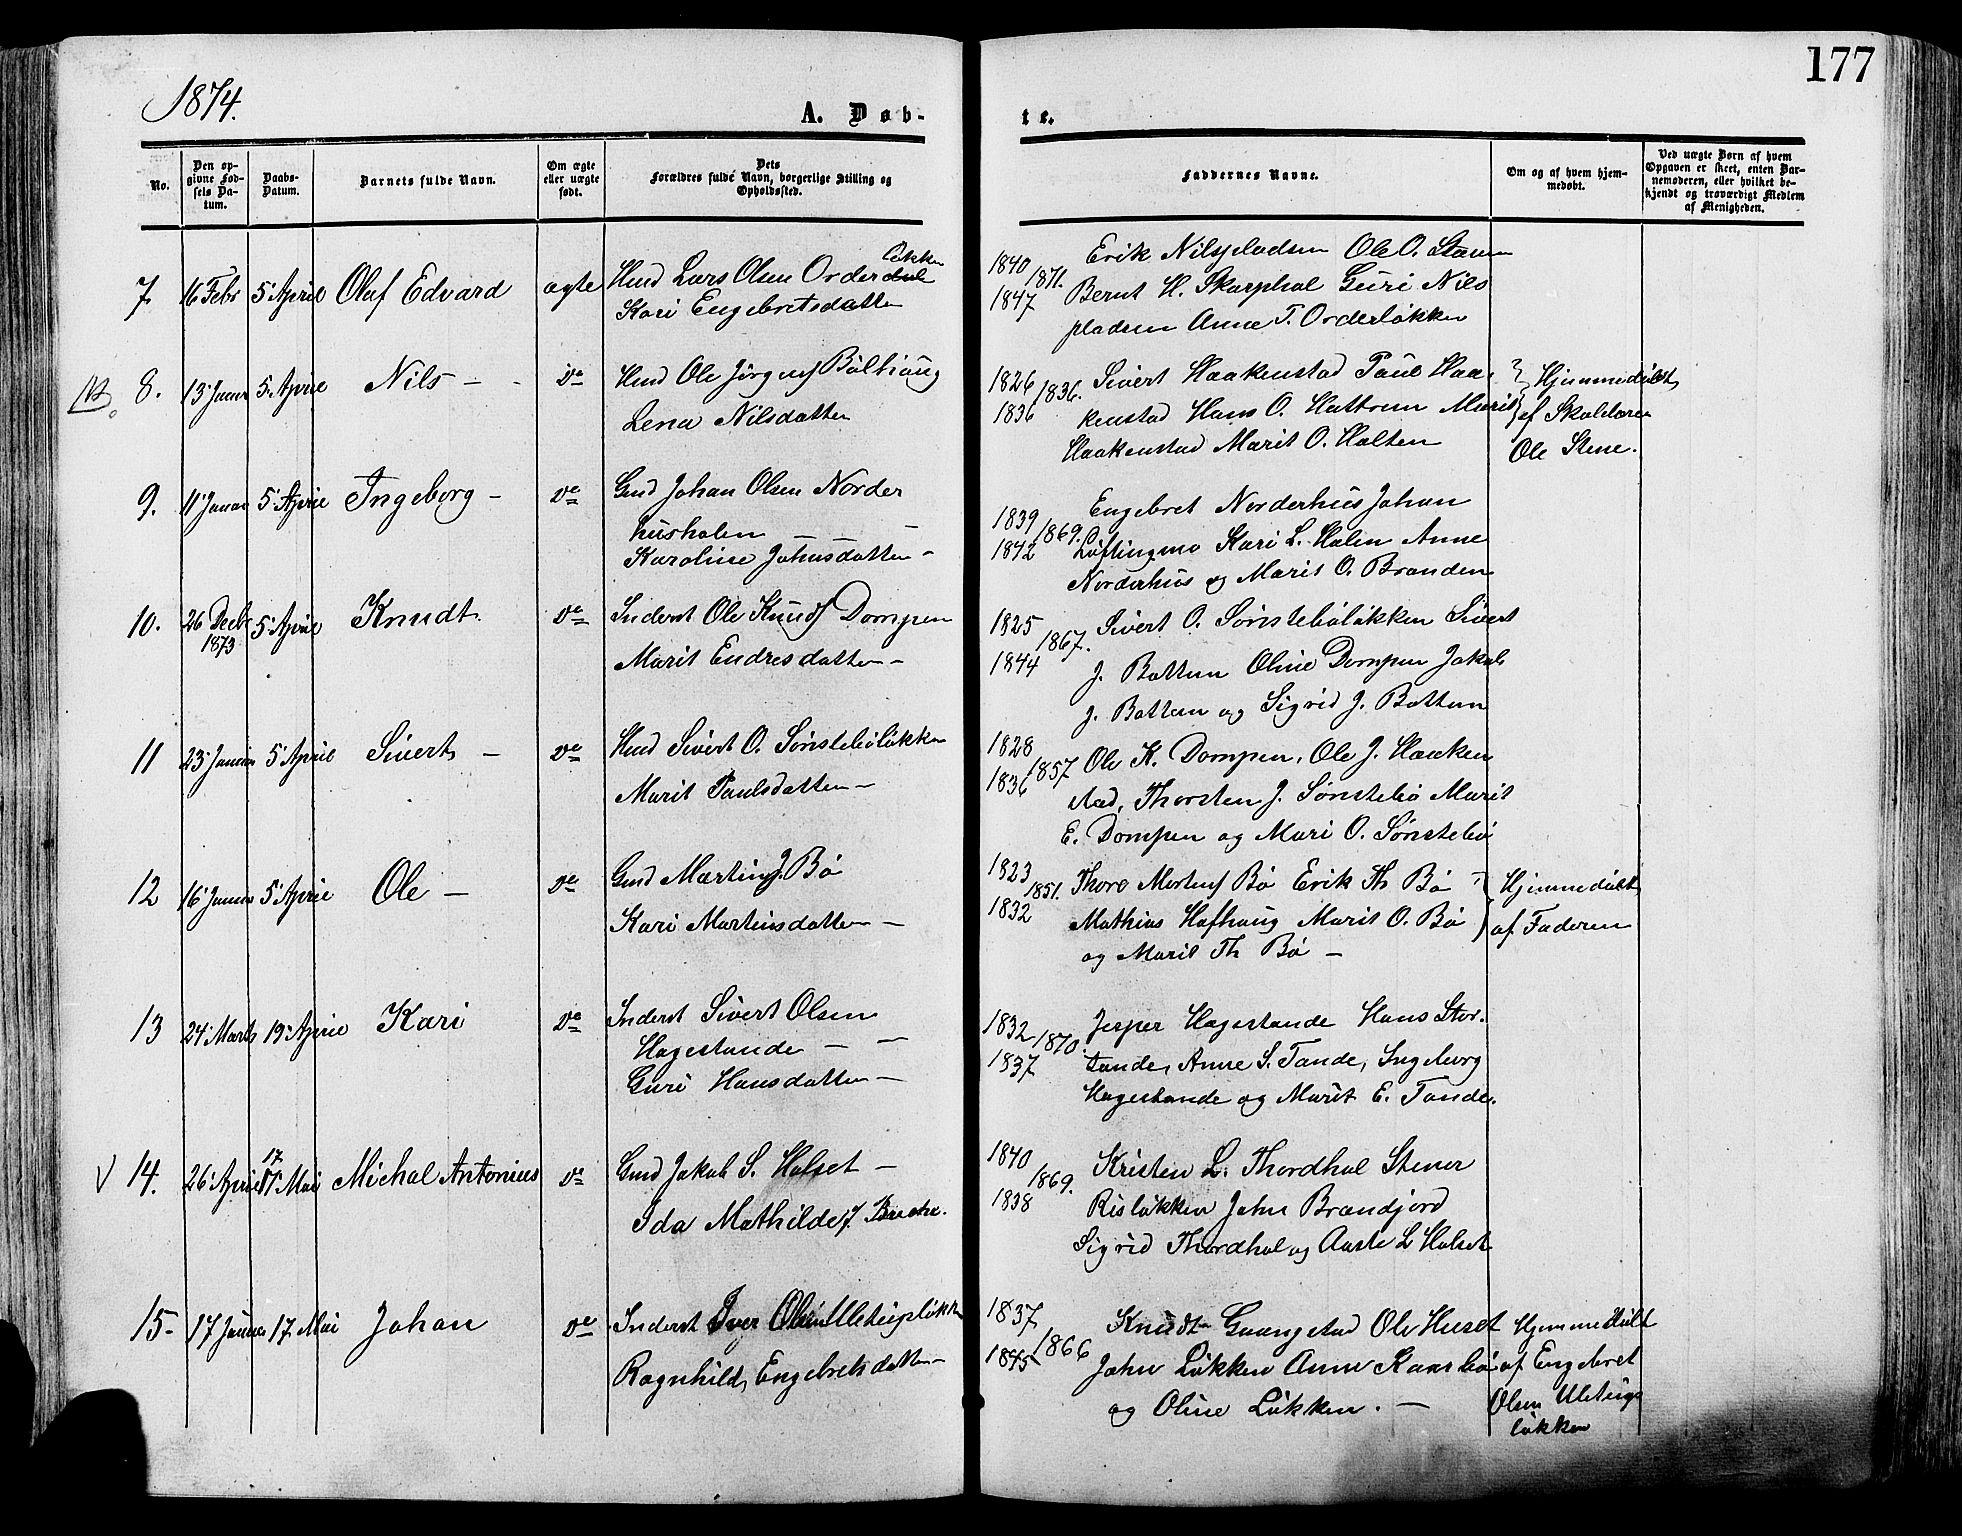 177
1874.
A. Døb-
te.
No.
Den op-
givne Fød-
sels Da-
tum.
Daabs-
Datum.
Barnets fulde Navn.
Om ægte
eller uægte
født.
Dets
Forældres fulde Navn, borgerlige Stilling og
Opholdssted.
Faddernes Navne.
Om og af hvem hjem-
medøbt.
Ved uægte Børn af hvem
Opgaven er skeet, enten Bar-
nemoderen, eller hvilket be-
kjendt og troværdigt Medlem
af Menigheden.
7. 16 Febr 5' April Olaf Edvard ægte
Hmd Lars Olsen Order løkken
Kari Engebretsdatter
1840 1871. 1847
Erik Nilspladsen Ole O. Stam
Bernt H. Skarphol Guri Nils
pladsen Anne T. Orderløkken
8. 13' Januar 5' April Nils - do
Hmd Ole Jørgens Bølhaug
Lena Nilsdatter
1826 1836. 1836
Sivert Haakenstad Paul Haa-
kenstad Hans O. Hattrem Marit
Haakenstad Marit O. Holten
Hjemmedøbt
af Skolelærer
Ole Stene.
9. 11' Januar 5' April Ingeborg - do
Gmd Johan Olsen Norder
husholen -
Karoline Johnsdatter -
1839 1869. 1842
Engebret Norderhus Johan
Løftingsmo Kari L. Holen Anne
Norderhus og Marit O. Branden
10. 26 Decbr 1873 5' April Knudt. do
Inderst Ole Knuds Dompen
Marit Endresdatter -
1825 1867. 1844
Sivert O. Sønstebøløkken Sivert
J. Battum Oline Dompen Jakob
J. Battum og Sigrid J. Battum
11 23' Januar 5' April Sivert - do
Hmd Sivert O. Sønstebøløkken
Marit Paulsdatter -
1828 1857 1836
Ole K. Dompen, Ole J. Haaken
stad, Thorsten J. Sønstebø Marit
E. Dompen og Mari O. Sønstebø
12 16' Januar 5' April Ole - do
Gmd Martin J. Bø
Kari Martinsdatter -
1823 1851. 1832
Thore Mortens Bø Erik Th Bø
Mathias Hafhaug Marit O. Bø
og Marit Th Bø -
Hjemmedøbt
af Faderen
13 24' Marts 19' April Kari do
Inderst Sivert Olsen
Hagestande -
Guri Hansdatter -
1832 1870. 1837
Jesper Hagestande Hans Stor-
tande, Anne S. Tande, Ingeborg
Hagestande og Marit E. Tande.
V 14. 26' April 17 Mai Michal Antonius do
Gmd Jakob S. Holset -
Ida Mathilde f.
1840 1869. 1838
Kristen L. Thordhol Stener
Risløkken John Brandjord
Sigrid Thordhol og Aaste L Holset
15- 17 Januar 17 Mai Johan do
Inderst Iver Olsen Uletingsløkken
Ragnhild Engebretsdatter -
1837 1866 1845
Knudt Gaangstad Ole Huset
John Løkken Anne Kaarsbø
og Oline Løkken. -
Hjemmedøbt
af Engebret
Olsen Uletings
løkken